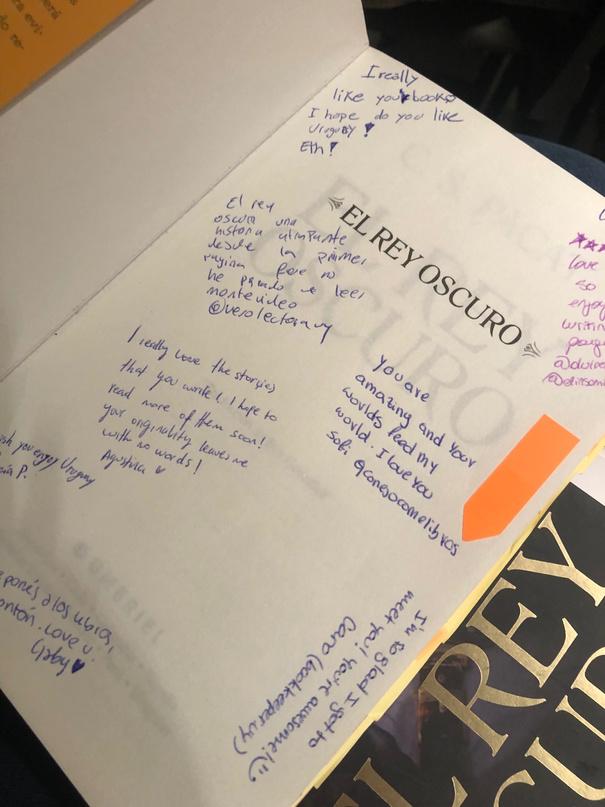 I really
like your books
I hope do you like
Uruguay!
Eth!
EL REY OSCURO
El rey
oscuro una
historia atrapante
desde la primer
pagina pero no
he parado de leer
montevideo
@verolectora.uy
I really love the story(ies)
that you write! I hope to
read more of them soon!
your originality leaves me
with no words!
Agustina
you are
amazing and your
worlds feed my
world. I love you
Sofi @conejocomelibros
love
so
enjoy
writing
you enjoy Uruguay
P.
ponés a los libros,
montón. Love u!
Gaby
I'm so glad I got to
meet you! You're awesome! :)
Caro (bookkeeper.uy)
EL REY